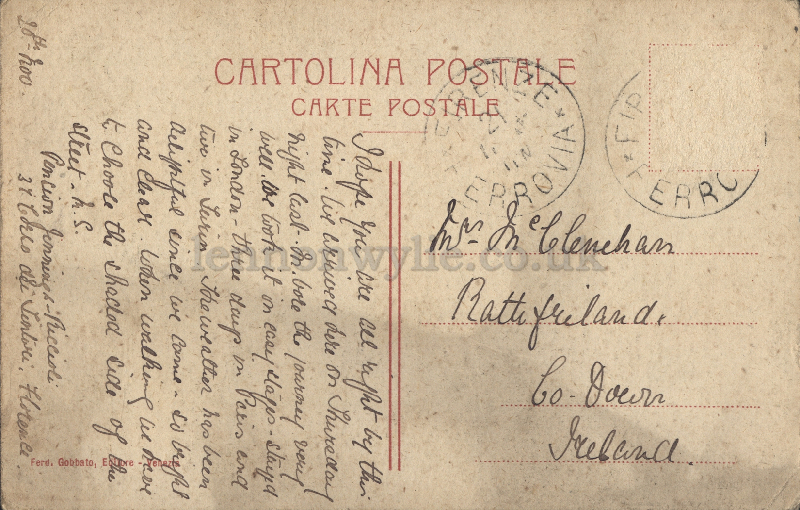 28th Nov
CARTOLINA POSTALE
CARTE POSTALE
FIRENZE
FERROVIA
FIR
FERRO
I hope you are all right by this
time. We arrived here on Thursday
night last. M. bore the journey very
well. We took it in easy stages - stayed
in London - three days in Paris and
two in Turin. The weather has been
delightful since we came - so bright
and clear. When walking we have
to choose the shaded side of the
street. M.S.
Pension Jennings-Riccioli
37 Corso dei Tintori. Florence.
Mrs McClenehan
Rathfriland.
Co-Down
Ireland.
Ferd. Gobbato, Editore - Venezia
lennonwylie.co.uk